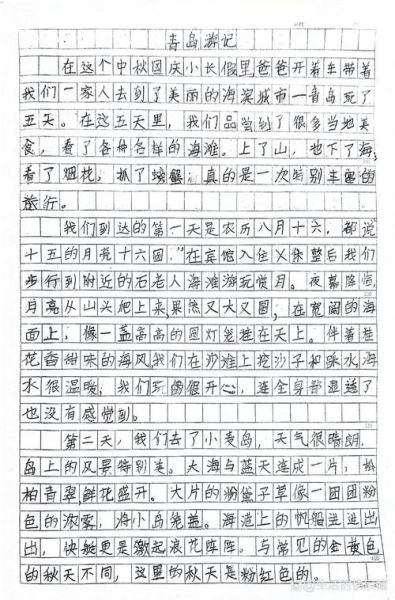 青岛游记
在这个中秋国庆小长假里,爸爸开着车带着
我们一家人去到了美丽的海滨城市一青岛玩了
五天。在这五天里,我们品尝到了很多当地美
食,看了各种各样的海滩。上了山,也下了海,
看了烟花,抓了螃蟹,真的是一次特别丰富的
旅行。
我们到达的第一天是农历八月十六,都说
十五的月亮十六圆."在宾馆入住休整后我们
步行到附近的石老人海滩游玩赏月。夜幕降临,
月亮从山头爬上来果然又大又圆,在宽阔的海
面上,像一盏高高的圆灯笼挂在天上。伴着桂
花香甜味的海风,我们在沙滩上挖沙子和踩水,海
水很温暖,我们玩的很开心,连全身都湿透了
也没有感觉到。
第二天,我们去了小麦岛,天气很晴朗,
岛上的风景特别美。大海与蓝天连成一片,松
柏青翠,鲜花盛开。大片的粉黛子草像一团团粉
色的浓雾,将小岛笼盖。海港上的帆船进进出
出,快艇更是激起浪花阵阵。与常见的金黄色
的秋天不同,这里的秋天是粉红色的。